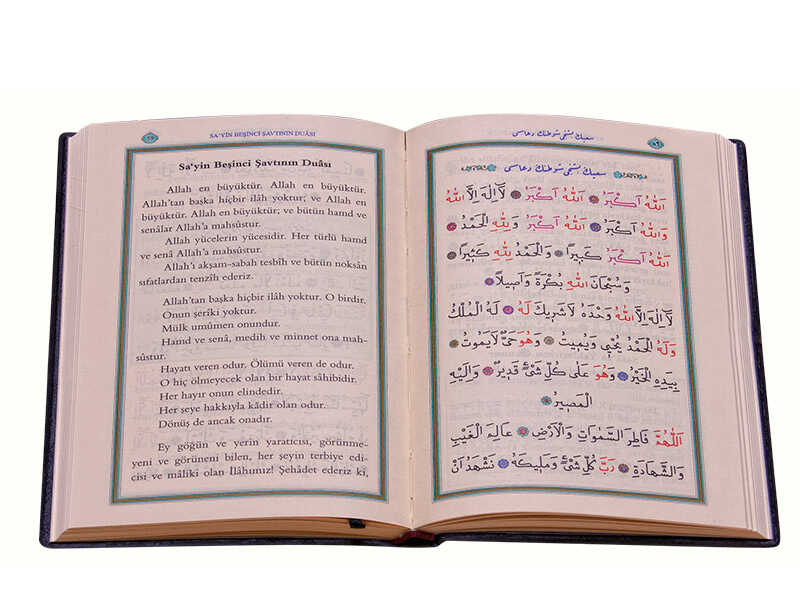 SA'YİN BEŞİNCİ ŞAVTININ DUÂSI
Sa'yin Beşinci Şavtının Duâsı
Allah en büyüktür. Allah en büyüktür.
Allah'tan başka hiçbir ilâh yoktur; ve Allah en
büyüktür. Allah en büyüktür; ve bütün hamd ve
senâlar Allah'a mahsûstur.
Allah yücelerin yücesidir. Her türlü hamd
ve senâ Allah'a mahsûstur.
Allah'ı akşam-sabah tesbîh ve bütün noksân
sıfatlardan tenzîh ederiz.
Allah'tan başka hiçbir ilâh yoktur. O birdir.
Onun şerîki yoktur.
Mülk umûmen onundur.
Hamd ve senâ, medih ve minnet ona mah-
sûstur.
Hayatı veren odur. Ölümü veren de odur.
O hiç ölmeyecek olan bir hayat sâhibidir.
Her hayır onun elindedir.
Her şeye hakkıyla kâdir olan odur.
Dönüş de ancak onadır.
Ey göğün ve yerin yaratıcısı, görünme-
yeni ve görüneni bilen, her şeyin terbiye edi-
cisi ve mâliki olan İlâhımız! Şehâdet ederiz ki,
سعيك بشنجى شوطنك دعاسى
سعيك بشنجى شوطنك دعاسى
اَللّٰهُ اَكْبَرُ اَللّٰهُ اَكْبَرُ لَٓا اِلٰهَ اِلَّا اللّٰهُ
وَاللّٰهُ اَكْبَرُ اَللّٰهُ اَكْبَرُ وَلِلّٰهِ الْحَمْدُ
اَللّٰهُ اَكْبَرُ كَبِيرًا وَالْحَمْدُ لِلّٰهِ كَثِيرًا
وَسُبْحَانَ اللّٰهِ بُكْرَةً وَاَصِيلًا
لَٓا اِلٰهَ اِلَّا اللّٰهُ وَحْدَهُ لَا شَرِيكَ لَهُ لَهُ الْمُلْكُ
وَلَهُ الْحَمْدُ يُحْيِى وَيُمِيتُ وَهُوَ حَىٌّ لَا يَمُوتُ
بِيَدِهِ الْخَيْرُ وَهُوَ عَلٰى كُلِّ شَىْءٍ قَدِيرٌ وَاِلَيْهِ
الْمَصِيرُ
اَللّٰهُمَّ فَاطِرَ السَّمٰوَاتِ وَالْاَرْضِ عَالِمَ الْغَيْبِ
وَالشَّهَادَةِ رَبَّ كُلِّ شَىْءٍ وَمَلِيكَهُ نَشْهَدُ اَنْ